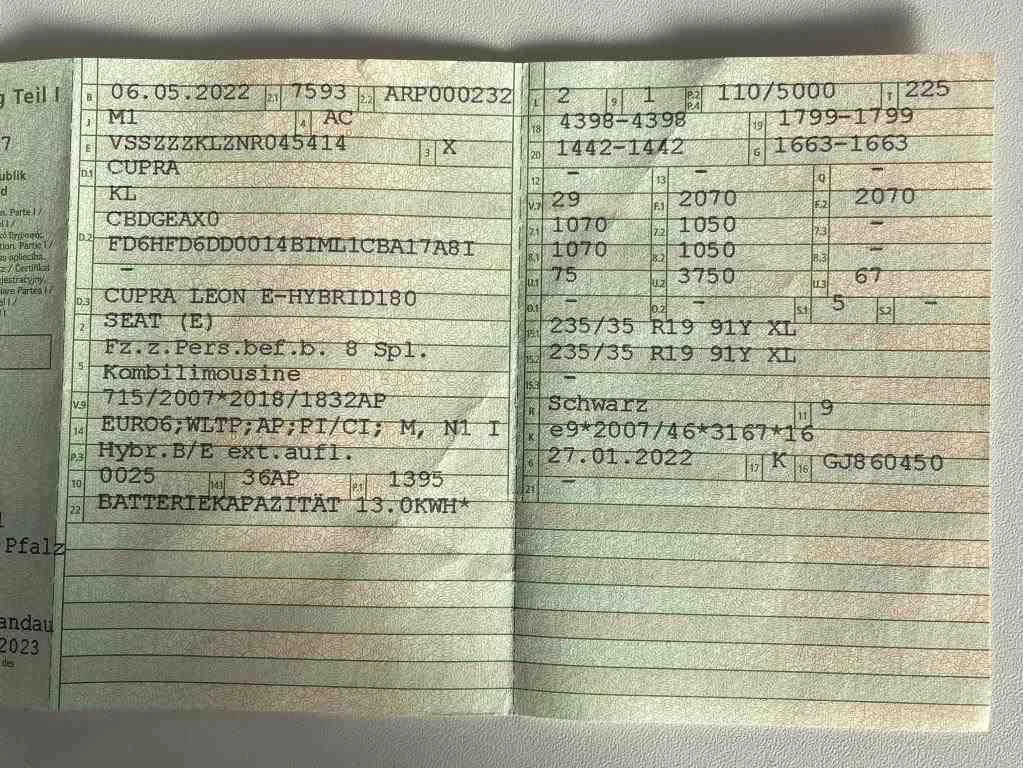 g Teil I
7
ublik
d
Pfalz
andau
2023
des
B 06.05.2022 2.1 7593 2.2 ARP000232
J M1 4 AC
E VSSZZZKLZNR045414 3 X
D.1 CUPRA
KL
D.2 CBDGEAX0
FD6HFD6DD0014BIML1CBA17A8I
–
D.3 CUPRA LEON E-HYBRID180
2 SEAT (E)
5 Fz.z.Pers.bef.b. 8 Spl.
Kombilimousine
V.9 715/2007*2018/1832AP
14 EURO6;WLTP;AP;PI/CI; M, N1 I
P.3 Hybr.B/E ext.aufl.
10 0025 14.1 36AP P.1 1395
22 BATTERIEKAPAZITÄT 13.0KWH*
L 2 9 1 P.2 P.4 110/5000 T 225
18 4398–4398 19 1799–1799
20 1442–1442 G 1663–1663
12 – 13 – Q –
V.7 29 F.1 2070 F.2 2070
7.1 1070 7.2 1050 7.3 –
8.1 1070 8.2 1050 8.3 –
U.1 75 U.2 3750 U.3 67
O.1 – O.2 – S.1 5 S.2 –
15.1 235/35 R19 91Y XL
15.2 235/35 R19 91Y XL
15.3 –
R Schwarz 11 9
K e9*2007/46*3167*16
6 27.01.2022 17 K 16 GJ860450
21 –